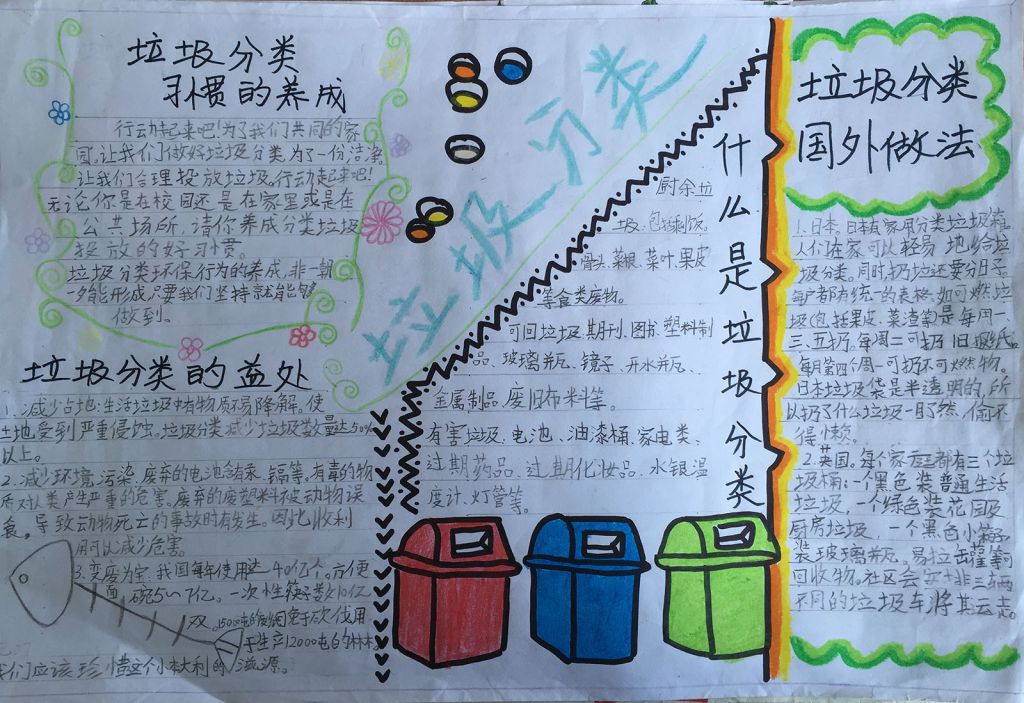 垃圾分类
习惯的养成
行动起来吧!为了我们共同的家
园,让我们做好垃圾分类为了一份洁净
让我们合理投放垃圾。行动起来吧!
无论你是在校园还是在家里或是在
公共场所,请你养成分类垃圾
投放的好习惯。
垃圾分类环保行为的养成,非一朝
一夕能形成,只要我们坚持就能够
做到。
垃圾分类的益处
1、减少占地:生活垃圾中有物质不易降解。使
土地受到严重侵蚀。垃圾分类减少垃圾数量达50%
以上。
2、减少环境污染。废弃的电池含有汞、镉等,有毒的物
质对人类产生严重的危害。废弃的废塑料被动物误
食。导致动物死亡的事故时有发生。因此收利
用可以减少危害。
3、变废为宝:我国每年使用达40亿个。方便
面碗5~7亿。一次性筷子数10亿
双。1500吨的废纸免于砍伐用
于生产1200吨白的林木
我们应该珍惜这个小本大利的资源。
垃圾分类
什么是垃圾分类
厨余垃
圾:包括剩饭。
骨头、菜根、菜叶、果皮
等食类废物。
可回垃圾:期刊、图书、塑料制
品、玻璃并瓦、镜子、开水并瓦、
金属制品、废旧布料等。
有害垃圾、电池、油漆桶、家电类、
过期药品、过期化妆品、水银温
度计、灯管等。
垃圾分类
国外做法
1、日本,日本有家用分类垃圾箱。
人们在家可以轻易地给垃
圾分类。同时,扔垃还要分日子。
每户都为统一的表格,如可燃垃
圾(包括果皮、菜渣等)是每周一
三、五扔,每周二可扔旧报纸。
每月第四个周一可扔不可燃物。
日本垃圾袋是半透明的,所
以扔了什么垃圾一目了然,偷不
得懒。
2、英国。每个家庭都有三个垃
圾桶:一个黑色,装普通生活
垃圾,一个绿色装花园及
厨房垃圾,一个黑色小箱子
装玻璃并瓦。易拉缶等可
回收物。社区会安排三辆
不同的垃圾车将其运走。